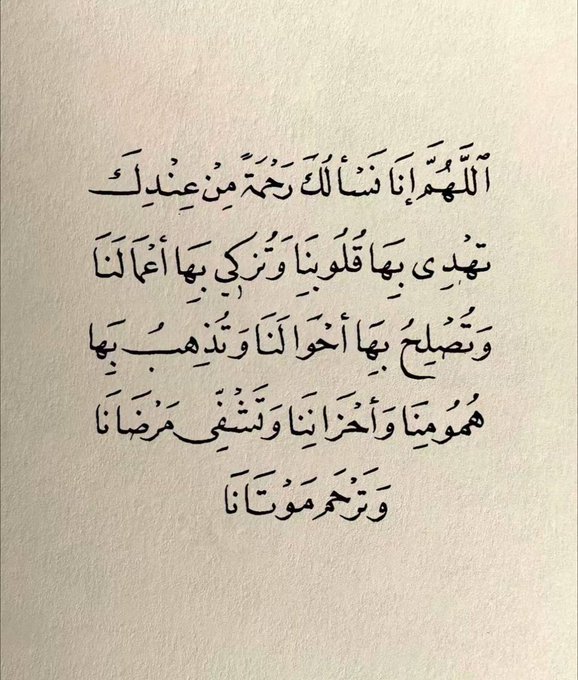 ٱللَّهُمَّ إِنَا نَسْأَلُكَ رَحْمَةً مِنْ عِنْدِكَ
تَهْدِي بِهَا قُلُوبِنَا وَتُزَكِي بِهَا أَعْمَالَنَا
وَتُصْلِحُ بِهَا أَحْوَالَنَا وَتُذْهِبُ بِهَا
هُمُومِنَا وَأَحْزَانِنَا وَتَشْفِّي مَرْضَانَا
وَتَرْحَم مَوْتَانَا